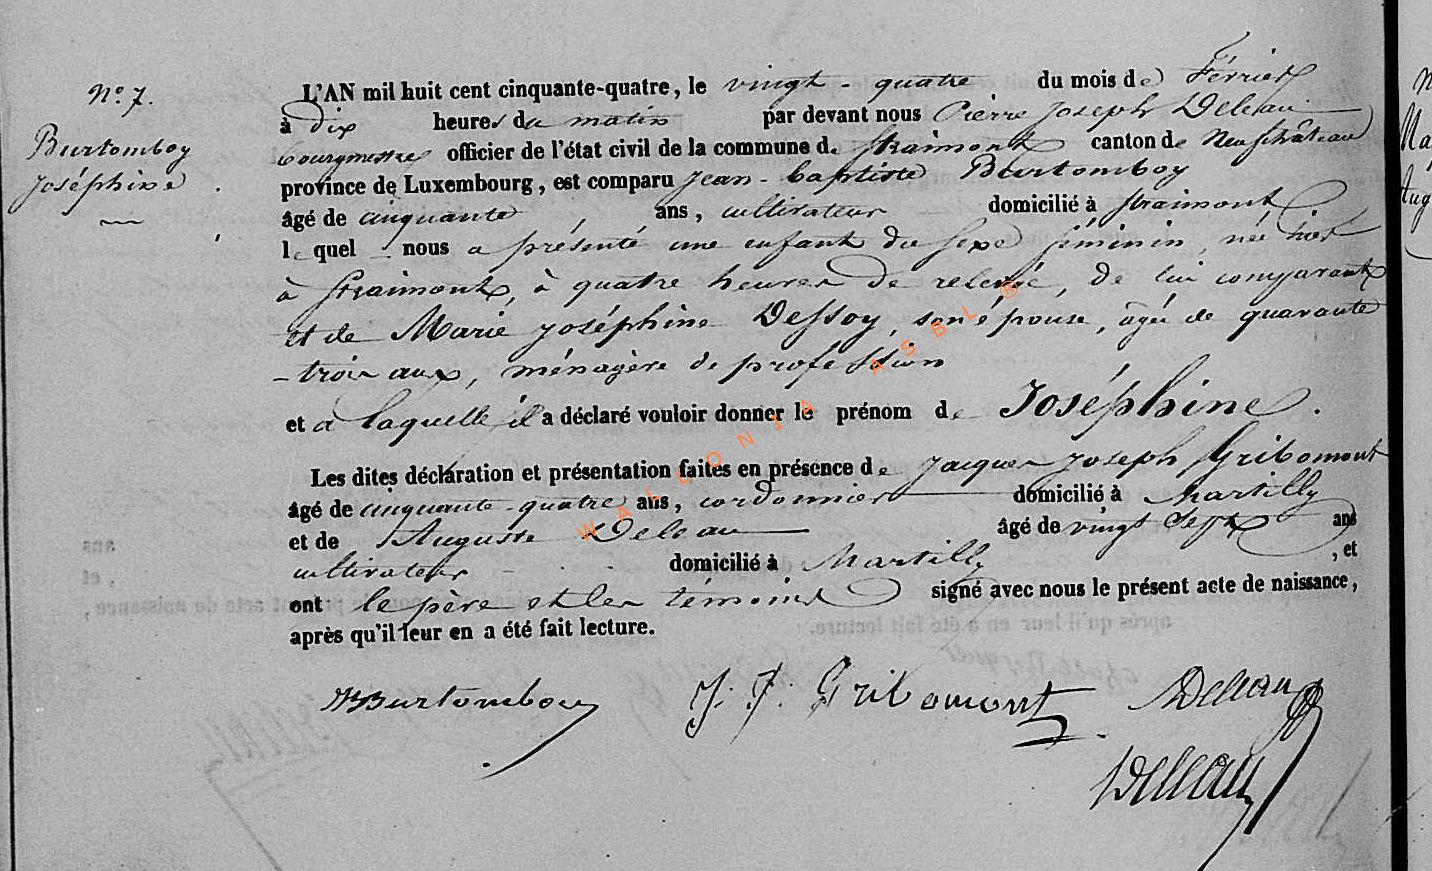 N.o 7.
Burtomboy
Joséphine.
L'AN mil huit cent cinquante-quatre, le vingt-quatre du mois de Février
à dix heures du matin par devant nous Pierre Joseph Deleau
bourgmestre officier de l'état civil de la commune de Straimont canton de Neufchâteau
province de Luxembourg, est comparu Jean-baptiste Burtomboy
âgé de cinquante ans, cultivateur domicilié à Straimont
lequel nous a présenté une enfant du sexe féminin, née hier
à Straimont, à quatre heures de relevée, de lui comparant
et de Marie Joséphine Dessoy, son épouse, âgée de quarante
-trois ans, ménagère de profession
et à laquelle il a déclaré vouloir donner le prénom de Joséphine.
Les dites déclaration et présentation faites en présence de Jacques Joseph Gribomont
âgé de cinquante-quatre ans, cordonnier domicilié à Martilly
et de Auguste Deleau âgé de vingt sept ans
cultivateur domicilié à Martilly, et
ont le père et les témoins signé avec nous le présent acte de naissance,
après qu'il leur en a été fait lecture.
JBBurtomboy J. J. Gribomont ADeleau
Deleau
WALLONIA ASBL ©